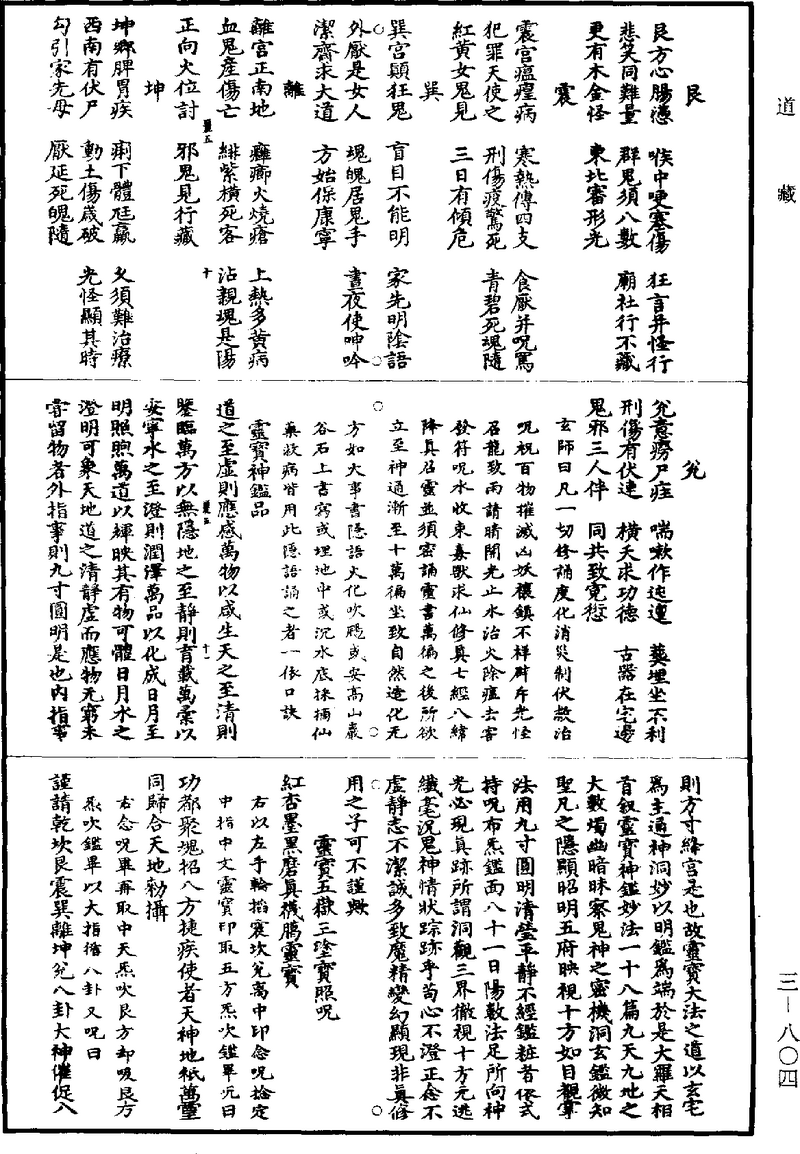 道藏
艮
艮方心腸懣　喉中哽塞傷　狂言并怪行
悲笑同難量　群鬼須八數　廟社行不藏
更有木金怪　東北審形光
震
震宮瘟瘟病　寒熱傳四支　食厭并呪罵
犯罪天使之　刑傷疫驚死　青碧死魂隨
紅黃女鬼見　三日有傾危
巽
巽宮顛狂鬼　盲目不能明　家先明陰語
外厭是女人　魂魄居鬼手　晝夜使呻吟
潔齋求大道　方始保康寧
離
離宮正南地　癰癤火燒瘡　上熱多黃病
血鬼產傷亡　緋紫橫死客　沾親魂是陽
正向火位討　邪鬼見行藏
坤
坤鄉脾胃疾　痢下體尪羸　久須難治療
西南有伏尸　動土傷歲破　光怪顯其時
勾引家先母　厭延死魄隨
兌
兌意癆尸疰　喘嗽作迍邅　墓埋坐不利
刑傷有伏連　橫夭求功德　古器在宅邊
鬼邪三人伴　同共致寃愆
玄師曰凡一切修誦度化消災制伏救治
呪祝百物摧滅凶妖禳鎮不祥辟斥光怪
召龍致雨請晴開光止水治火除瘟去害
發符呪水收束毒獸求仙修真七經八緯
降真召靈並須密誦靈書萬徧之後所欲
立至神通漸至十萬徧坐致自然造化无
方如大事書隱語火化吹颺或安高山巖
谷石上書寫或埋地中或沉水底採捕仙
藥救病皆用此隱語誦之者一依口訣
靈寶神鑑品
道之至虛則應感萬物以成生天之至清則
鑒臨萬方以無隱地之至靜則育載萬彙以
安寧水之至澄則潤澤萬品以化成日月至
明照煦萬道以輝映其有物可體日月水之
澄明可象天地道之清靜虛而應物无窮未
嘗留物者外指事則九寸圓明是也內指事
則方寸絳宮是也故靈寶大法之道以玄宅
為主通神洞妙以明鑑為端於是大羅天相
首叙靈寶神鑑妙法一十八篇九天九地之
大數燭幽暗昧察鬼神之密機洞玄鑑微知
聖凡之隱顯昭明五府映視十方如目覩掌
法用九寸圓明清瑩平靜不經鑑粧者依式
持呪布炁鑑面八十一日陽數法足所向神
光必現真跡所謂洞觀三界徹視十方元逃
纖毫況鬼神情狀踪跡乎苟心不澄正念不
虛靜志不潔誠多致魔精變幻顯現非真修
用之子可不謹歟
靈寶五嶽三塗寶照呪
紅杏墨黑磨真襪鴈靈寶
右以左手輪掐震坎兌离中印念呪捻定
中指中文靈寶印取五方炁吹鑑畢元曰
功都聚塊招八方捷疾使者天神地祇萬靈
同歸合天地勑攝
右念呪畢再取中天炁吹艮方却吸艮方
炁吹鑑畢以大指搯八卦又呪曰
謹請乾坎艮震巽離坤兌八卦大神催促八
三一八〇四